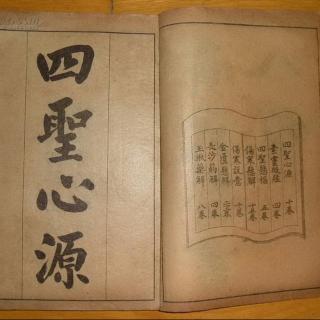 四聖心源
四聖心源 十卷
素靈微蘊 四卷
四聖懸樞 五卷
傷寒懸解 十五卷
傷寒說意 十卷
金匱懸解
長沙藥解 四卷
玉楸藥解 八卷